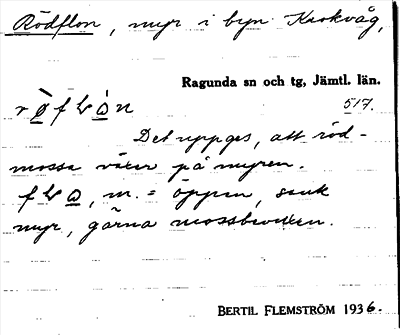 Rödflon, myr i byn Krokvåg,
Ragunda sn och tg, Jämtl. län.
517.
Det uppges, att röd-
mossa växer på myren.
m. = öppen, sank
myr, gärna mossbevuxen.
BERTIL FLEMSTRÖM 1936.